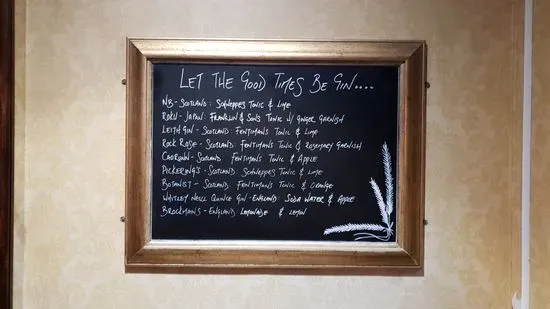 LET THE GOOD TIMES BE GIN....
NB - SCOTLAND: SCHWEPPES TONIC & LIME
ROKU - JAPAN: FRANKLIN & SONS TONIC W/ GINGER GARNISH
LEITH GIN - SCOTLAND: FENTIMANS TONIC & LIME
ROCK ROSE - SCOTLAND: FENTIMANS TONIC & ROSEMARY GARNISH
CAORUNN - SCOTLAND FENTIMANS TONIC & APPLE
PICKERING'S - SCOTLAND SCHWEPPES TONIC & LIME
BOTANIST - SCOTLAND FENTIMANS TONIC & ORANGE
WHITLEY NEILL QUINCE GIN - ENGLAND: SODA WATER & APPLE
BROCKMANS - ENGLAND: LEMONADE & LEMON